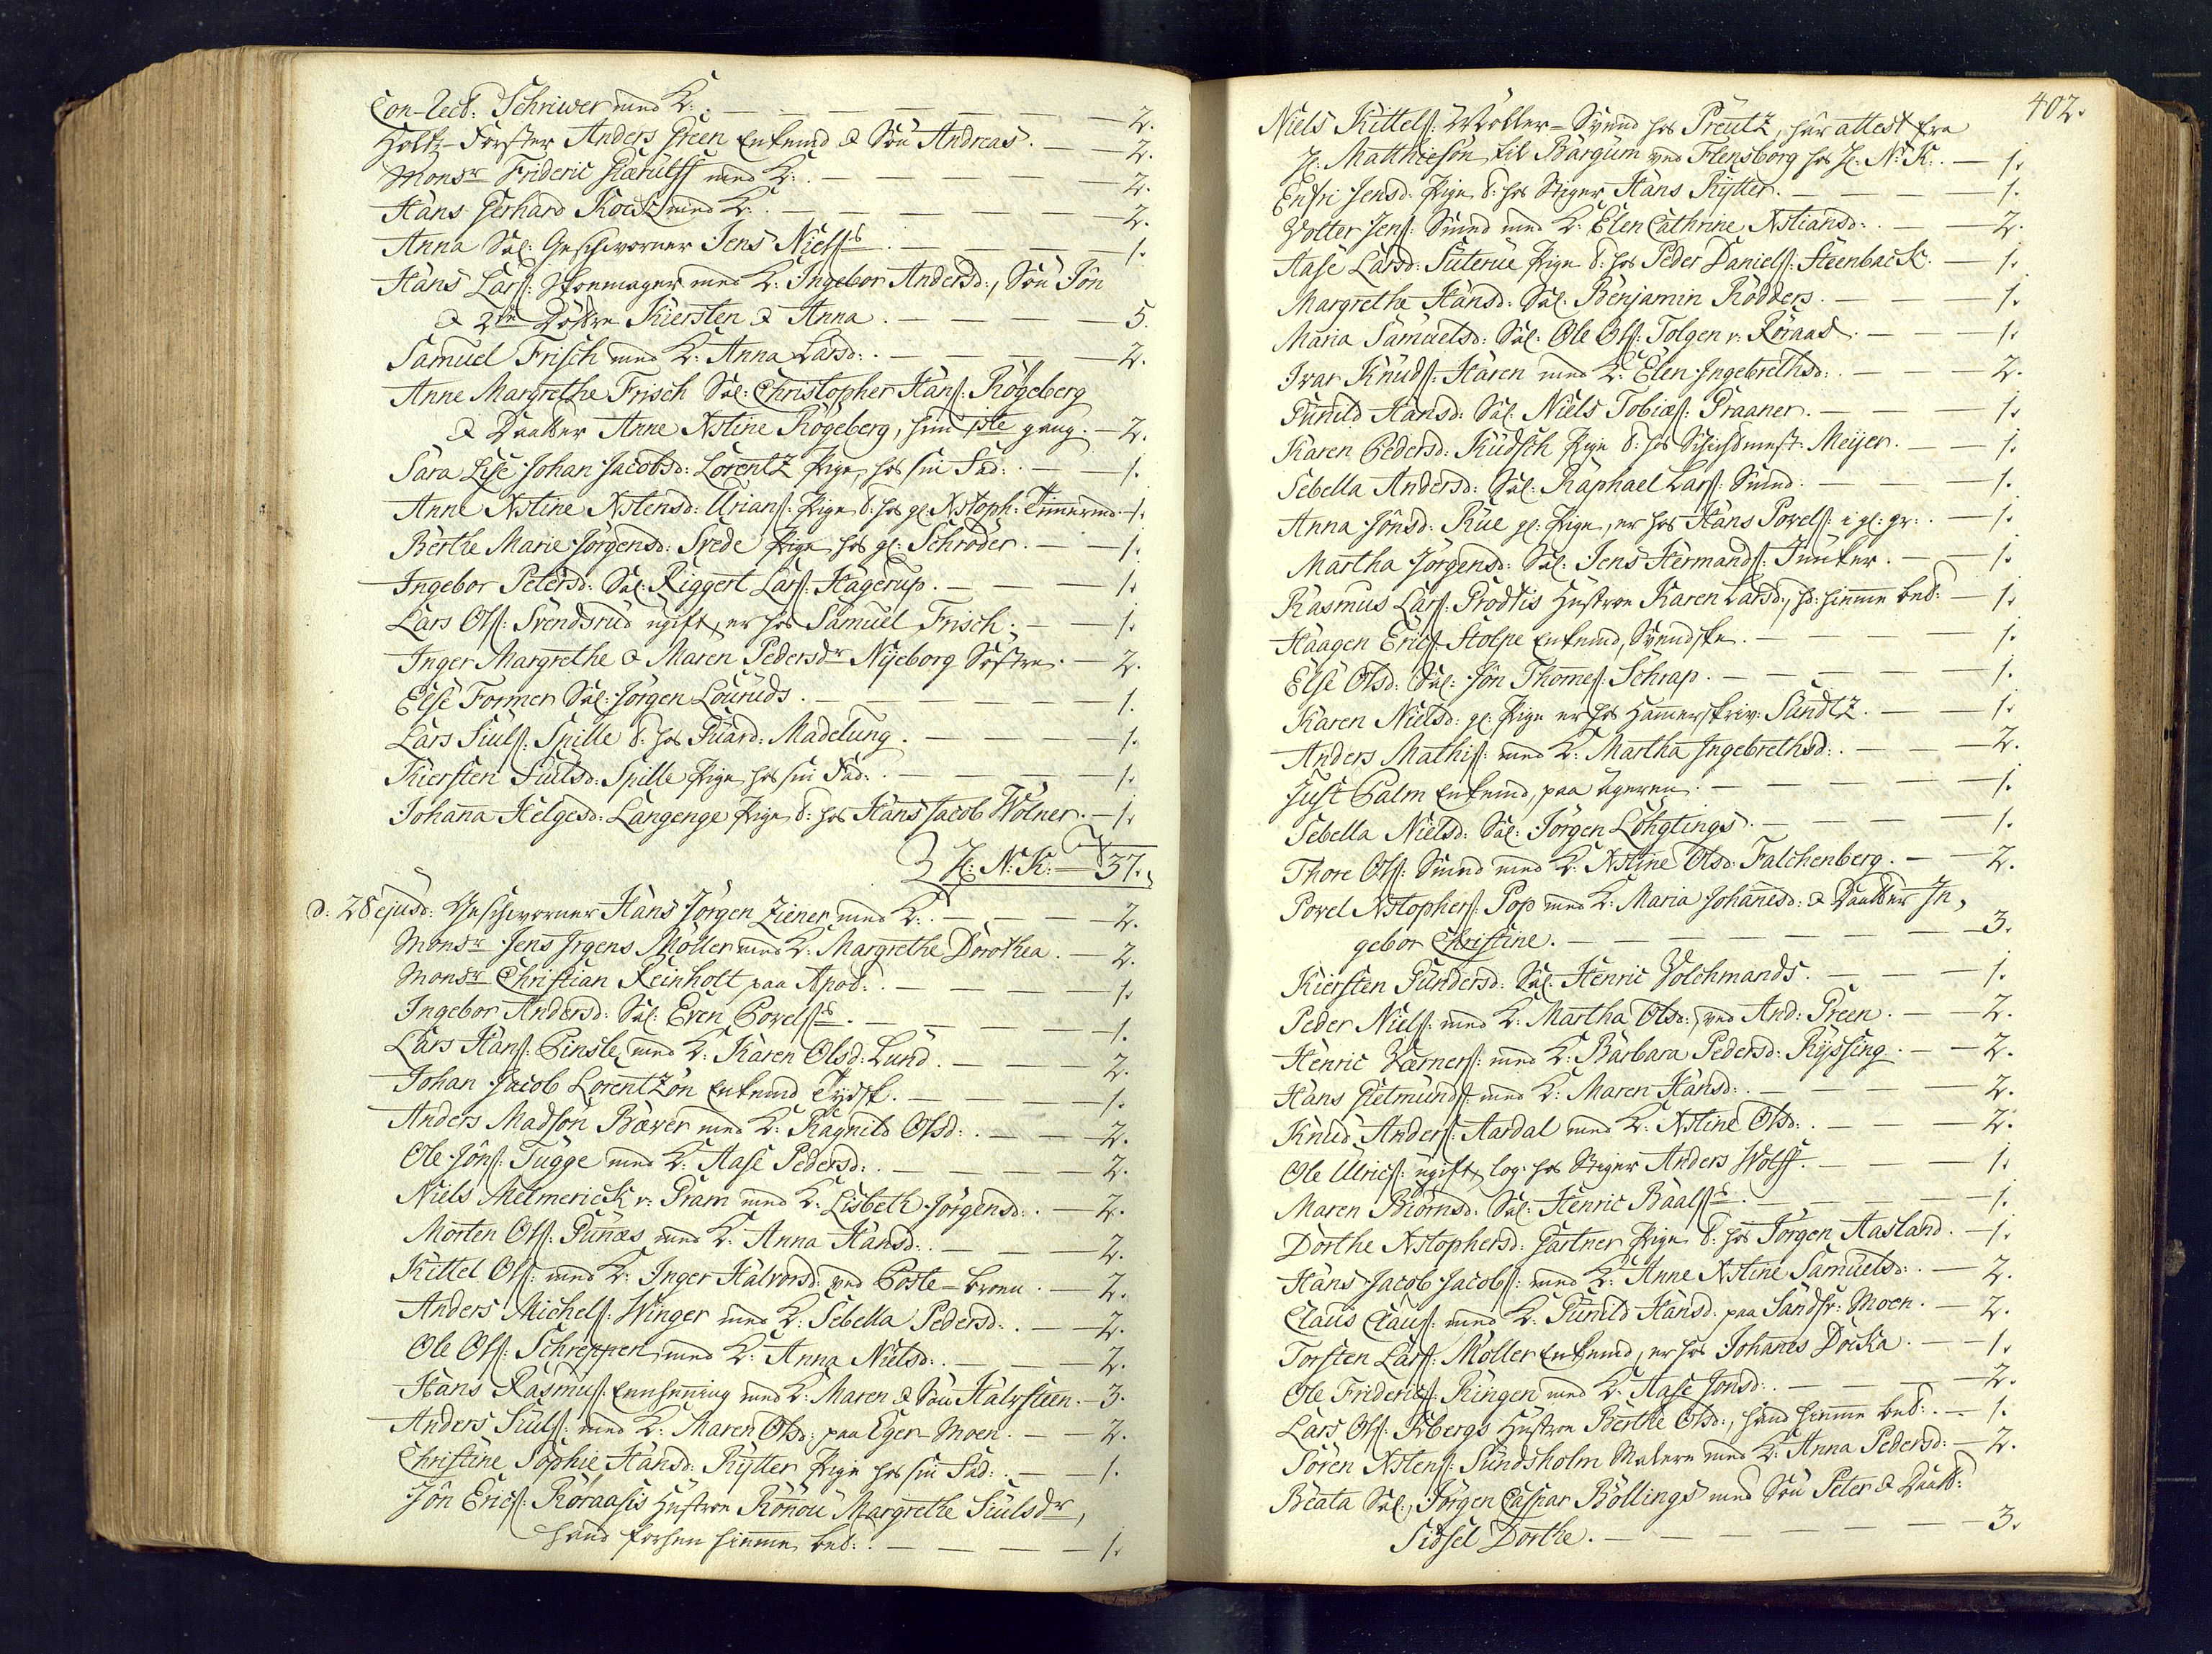 Con-Rect: Schriwer med K: 2.
Holtz-Forster Anders Green Enkemd & Sön Andreas. 2.
Monsr Frideric Giærulff med K: 2.
Hans Gerhard Kock med K: 2.
Anna Sal: Geschworner Jens Nielss 1.
Hans Lars: Skomager med K: Ingebor Andersd:, Sön Jôn
& 2de Döttre Kiersten & Anna. 5.
Samuel Frisch med K: Anna Larsd: 2.
Anne Margrethe Frisch Sal: Christopher Hans: Rögeberg
& Daatter Anne Xstine Rögeberg, hun 1ste gang. 2.
Sara Lise Johan Jacobsd: Lorentz Pige, hos sin Fad: 1.
Anne Xstine Xstensd: Urians: Pige, t: hos gl: Xstoph: Timmermd. 1.
Berthe Marie Jörgensd: Svede Pige hos gl: Schrøder. 1.
Ingebor Petersd: Sal: Riggert Lars: Hagerup. 1.
Lars Ols: Svendsrud ugift, er hos Samuel Frisch. 1.
Inger Margrethe & Maren Pedersdr Nyeborg Søstre. 2.
Else Former Sal: Jörgen Louruds. 1.
Lars Siuls: Spille t: hos Guard: Madelung. 1.
Kiersten Siulsd: Spille Pige, hos sin Fad: 1.
Johana Helgesd: Langenge Pige, t: hos Hans Jacob Wölner. 1.
H: N: K: 37.
d: 28 ejusd: Geschworner Hans Jörgen Ziener med K: 2.
Monsr Jens Irgens Möller med K: Margrethe Dorothea. 2.
Monsr Christian Reinholt paa Apot: 1.
Ingebor Andersd: Sal: Even Povelss. 1.
Lars Hans: Pinsle med K: Karen Olsd: Lund. 2.
Johan Jacob Lorentzön Enkemd Tydsk. 1.
Anders Madsön Bæver med K: Ragnild Olsd: 2.
Ole Jôns: Tugge med K: Aase Pedersd: 2.
Niels Melmerick v: Gram med K: Lisbeth Jörgensd: 2.
Morten Ols: Gunæs med K: Anna Hansd: 2.
Kittel Ols: med K: Inger Halvorsd: ved Poste-broen. 2.
Anders Michels: Winger med K: Sebella Pedersd: 2.
Ole Ols: Schreppen med K: Anna Nielsd: 2.
Hans Rasmus: Ennhenning med K: Maren & Sön Halvsteen. 3.
Anders Siuls: med K: Maren Olsd: paa Eger-Moen. 2.
Christine Sophie Hansd: Rytter Pige hos sin Fad: 1.
Jôn Erics: Röraasis Hustroe Rönou Margrethe Siulsdr,
hand forhen hiemme bet: 1.
402.
Niels Kittels: Möller-Svend hos Preutz, har attest fra
H: Matthiesön til Bargum ved Flensborg hos H: N: K: 1.
Enfri Jensd: Pige t: hos Stiger Hans Rytter. 1.
Volter Jens: Smed med K: Elen Cathrine Xstiansd: 2.
Aase Larsd: Guterue Pige t: hos Peder Daniels: Steenback. 1.
Margrethe Hansd: Sal: Benjamin Rödders. 1.
Maria Samuelsd: Sal: Ole Ols: Tolgen v: Röraas. 1.
Ivar Knuds: Haren med K: Elen Ingebrethsd: 2.
Gunild Hansd: Sal: Niels Tobias: Graaner. 1.
Karen Pedersd: Kudsch Pige t: hos Schichtmest: Meyer. 1.
Sebella Andersd: Sal: Raphael Lars: Smed. 1.
Anna Jônsd: Rue gl: Pige, er hos Hans Povels: i gl: gr: 1.
Martha Jörgensd: Sal: Jens Hermands: Junker. 1.
Rasmus Lars: Grodtis Hustroe Karen Larsd:, hd: hiemme bet: 1.
Haagen Erics: Stolpe Enkemd, Svendske. 1.
Else Olsd: Sal: Jôn Thomes: Schrap. 1.
Karen Nielsd: gl: Pige er hos Hammerskriv: Sandtz. 1.
Anders Mathis: med K: Martha Ingebrethsd: 2.
Just Palm Enkemd, paa Ageren. 1.
Sebella Nielsd: Sal: Jörgen Löhgtings. 1.
Thore Ols: Smed med K: Xstine Olsd: Falchenberg. 2.
Povel Xstophers: Pop med K: Maria Johanesd: & Daatter In-
gebor Christine. 3.
Kiersten Gundersd: Sal: Henric Volchmands. 1.
Peder Niels: med K: Martha Olsd:, ved And: Green. 2.
Henric Værners: med K: Barbara Pedersd: Ryssing. 2.
Hans Gietmunds: med K: Maren Hansd: 2.
Knud Anders: Aardal med K: Xstine Olsd: 2.
Ole Ulrics: ugift, log: hos Stiger Anders Wolff. 1.
Maren Biörnsd: Sal: Henric Baalss. 1.
Dorthe Xstophersd: Gartner Pige t: hos Jörgen Aasland. 1.
Hans Jacob Jacobs: med K: Anne Xstine Samuelsd: 2.
Claus Claus: med K: Gunild Hansd: paa Sandsv: Moen. 2.
Torsten Lars: Möller Enkemd, er hos Johanes Docka. 1.
Ole Frideric: Ringen med K: Aase Jonsd: 2.
Lars Ols: Frbergs Hustroe Berthe Olsd:, hand hiemme bet: 1.
Sören Xstens: Sundsholm Malere med K: Anna Pedersd: 2.
Beata Sal: Jörgen Caspar Böllings med Sön Peter & Daatt:
Sidsel Dorthe. 3.